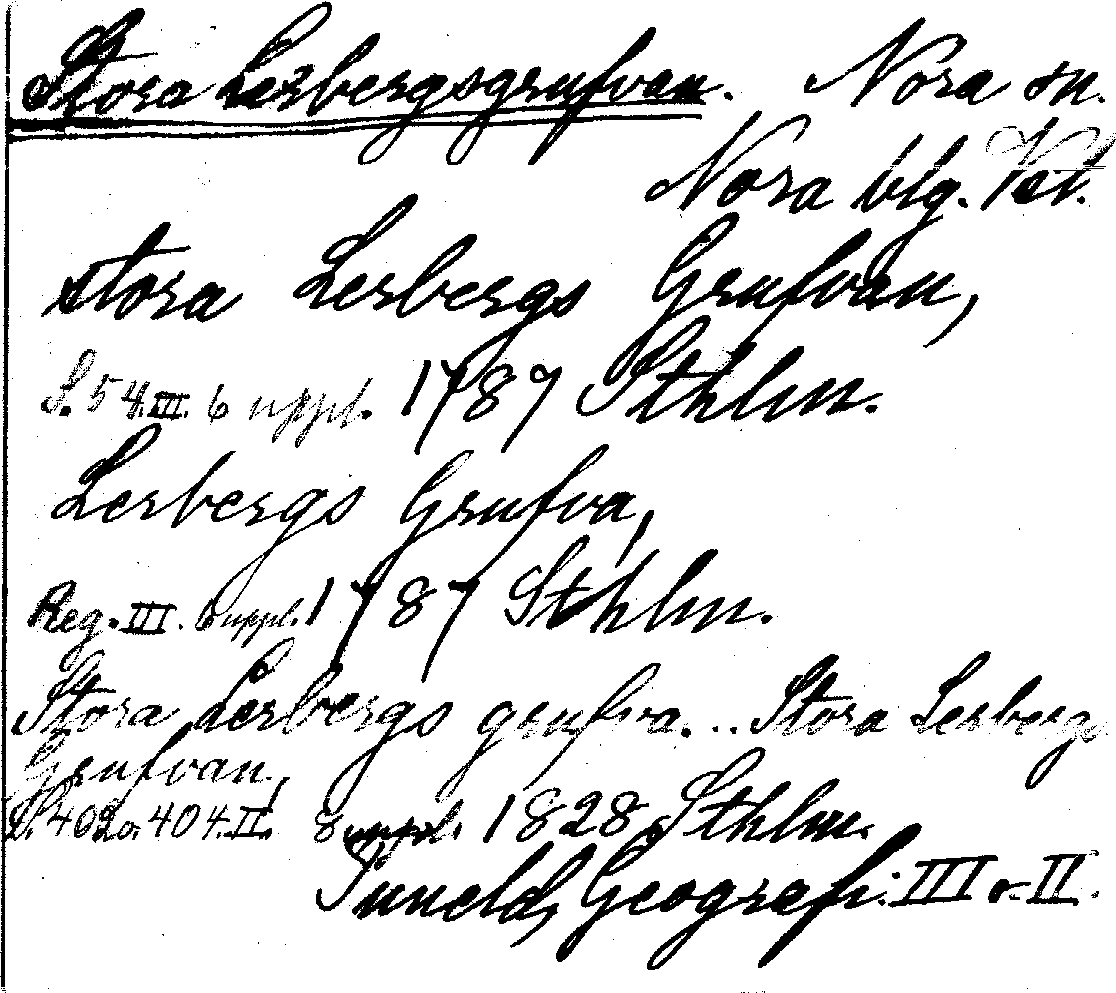 Stora Lerbergsgrufvan. Nora sn.
Nora blg. Vstm.
stora Lerbergs Grufvan,
S. 54. III. 6 uppl. 1787 Sthlm.
Lerbergs Grufva,
Reg. III. 6 uppl. 1787 Sthlm.
Stora Lerbergs grufva... Stora Lerbergs
Grufvan,
S. 402 o. 404. II. 8 uppl. 1828 Sthlm.
Tuneld, Geografi. III o II.